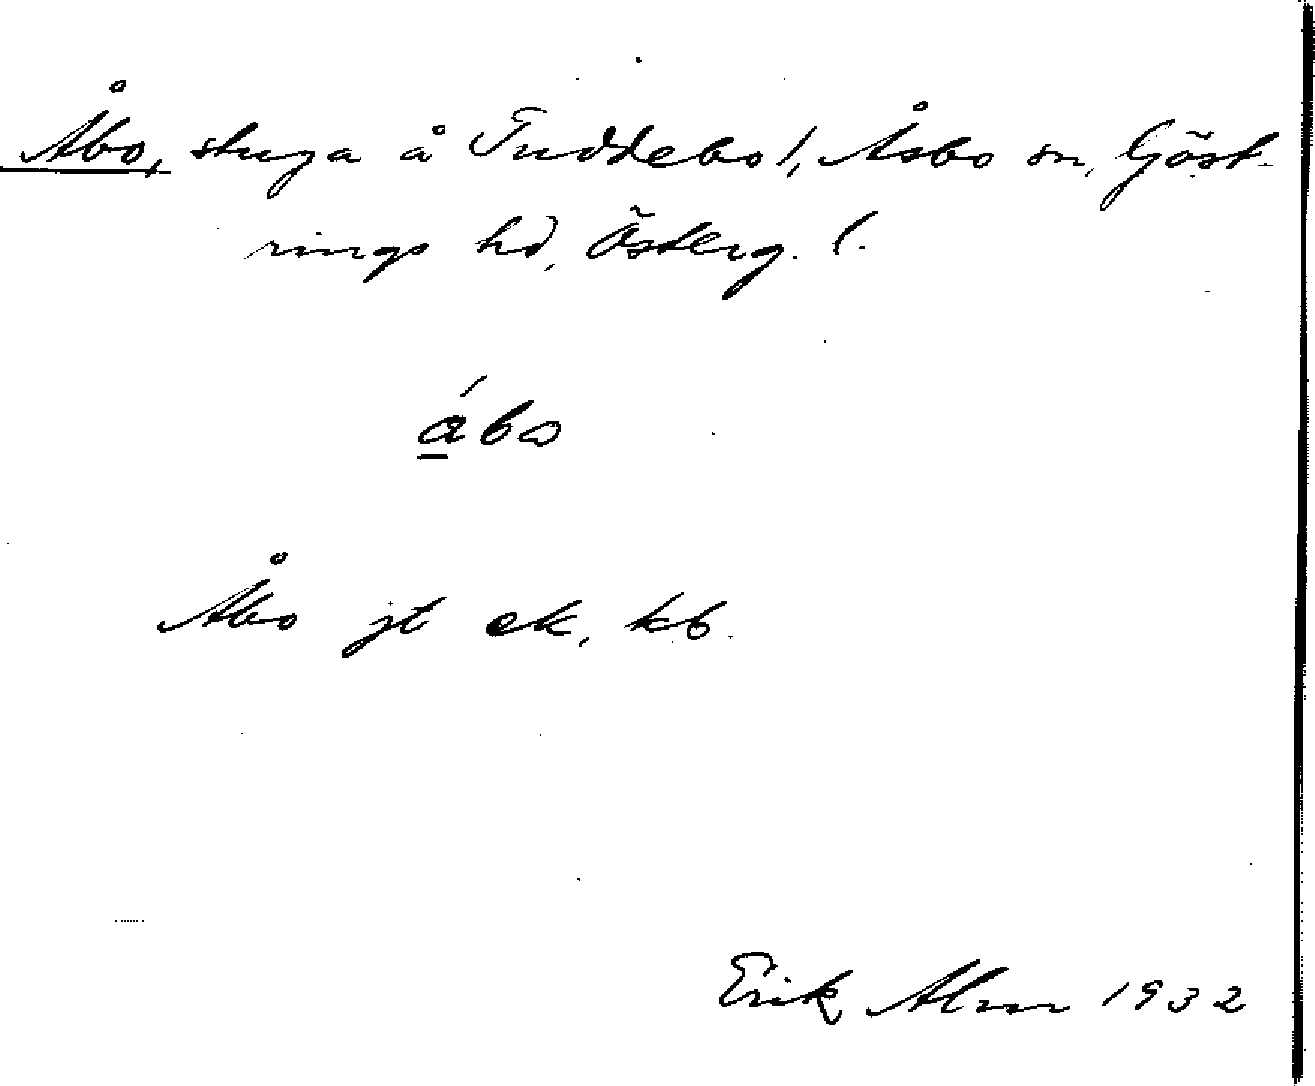 Åbo, stuga å Tuddebo l, Åsbo sn, Göst-
rings hd, Österg. l.
ábo
Åbo jt ek, kb.
Erik Alm 1932